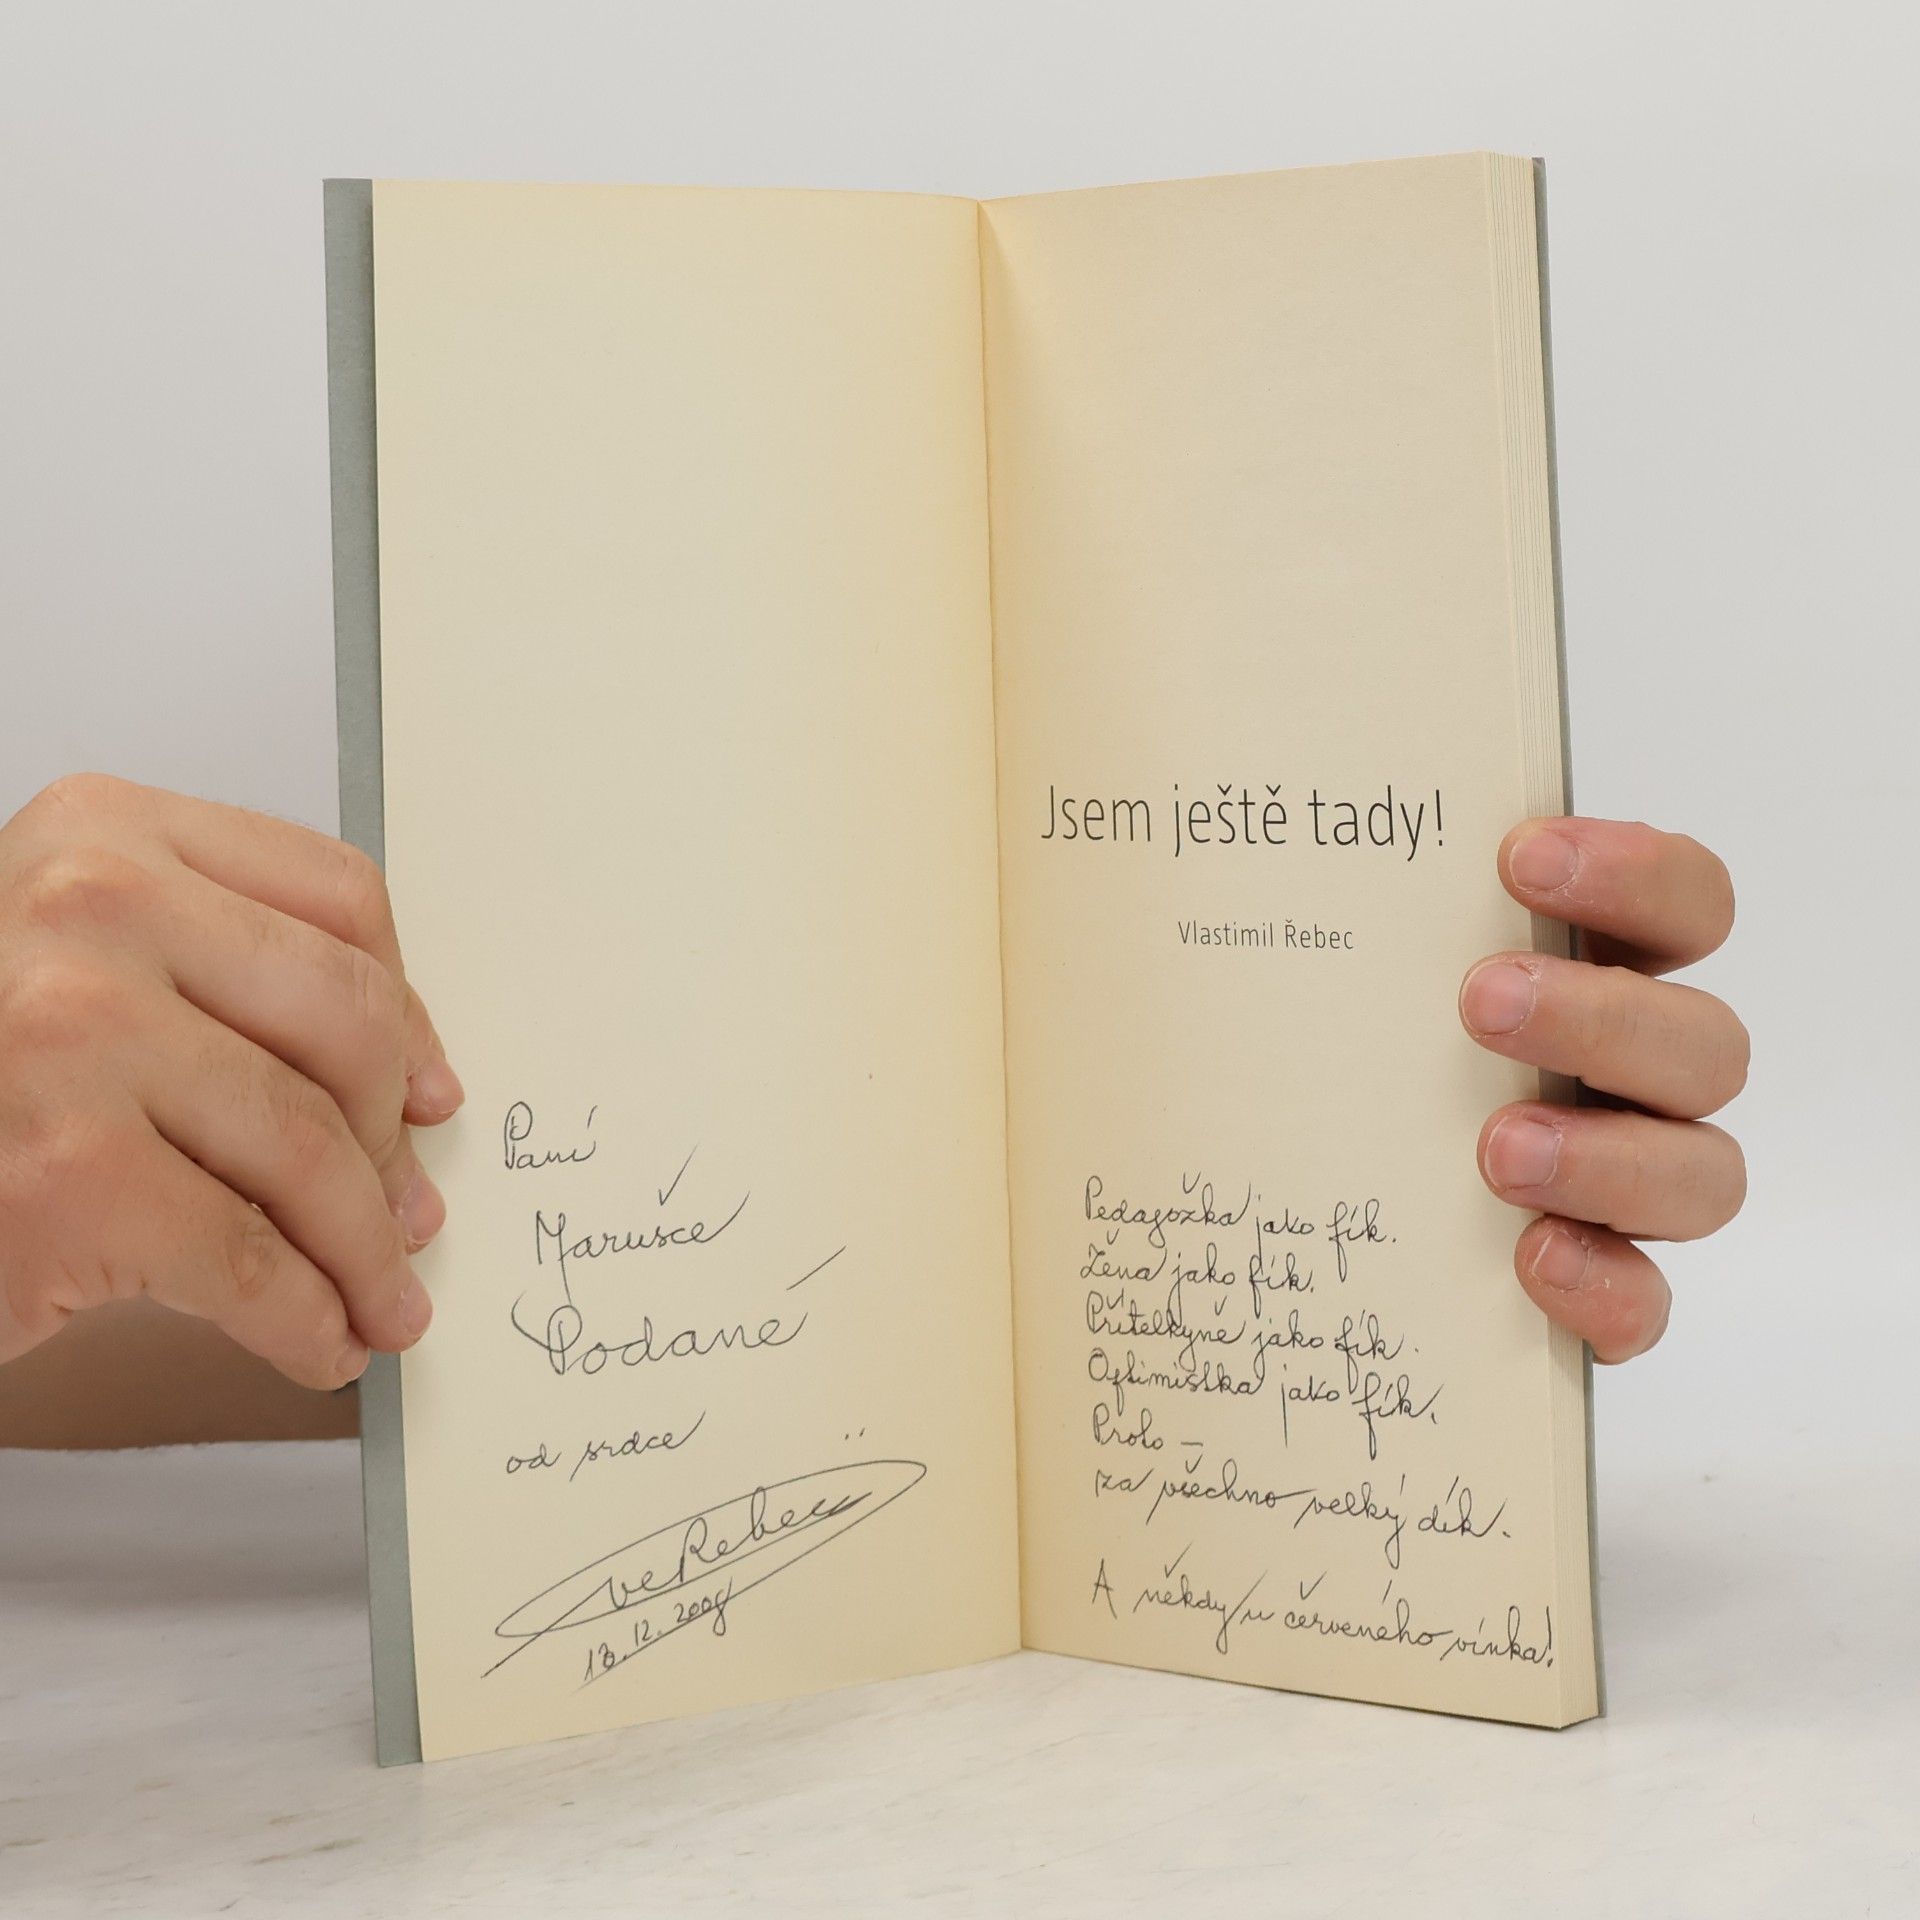 Paní
Marušce
Podané
od srdce
Vl. Řebec
13. 12. 2008
Jsem ještě tady!
Vlastimil Řebec
Pedagožka jako fík.
Žena jako fík.
Přítelkyně jako fík.
Optimistka jako fík.
Proto —
za všechno velký dík.
A někdy u červeného vínka!